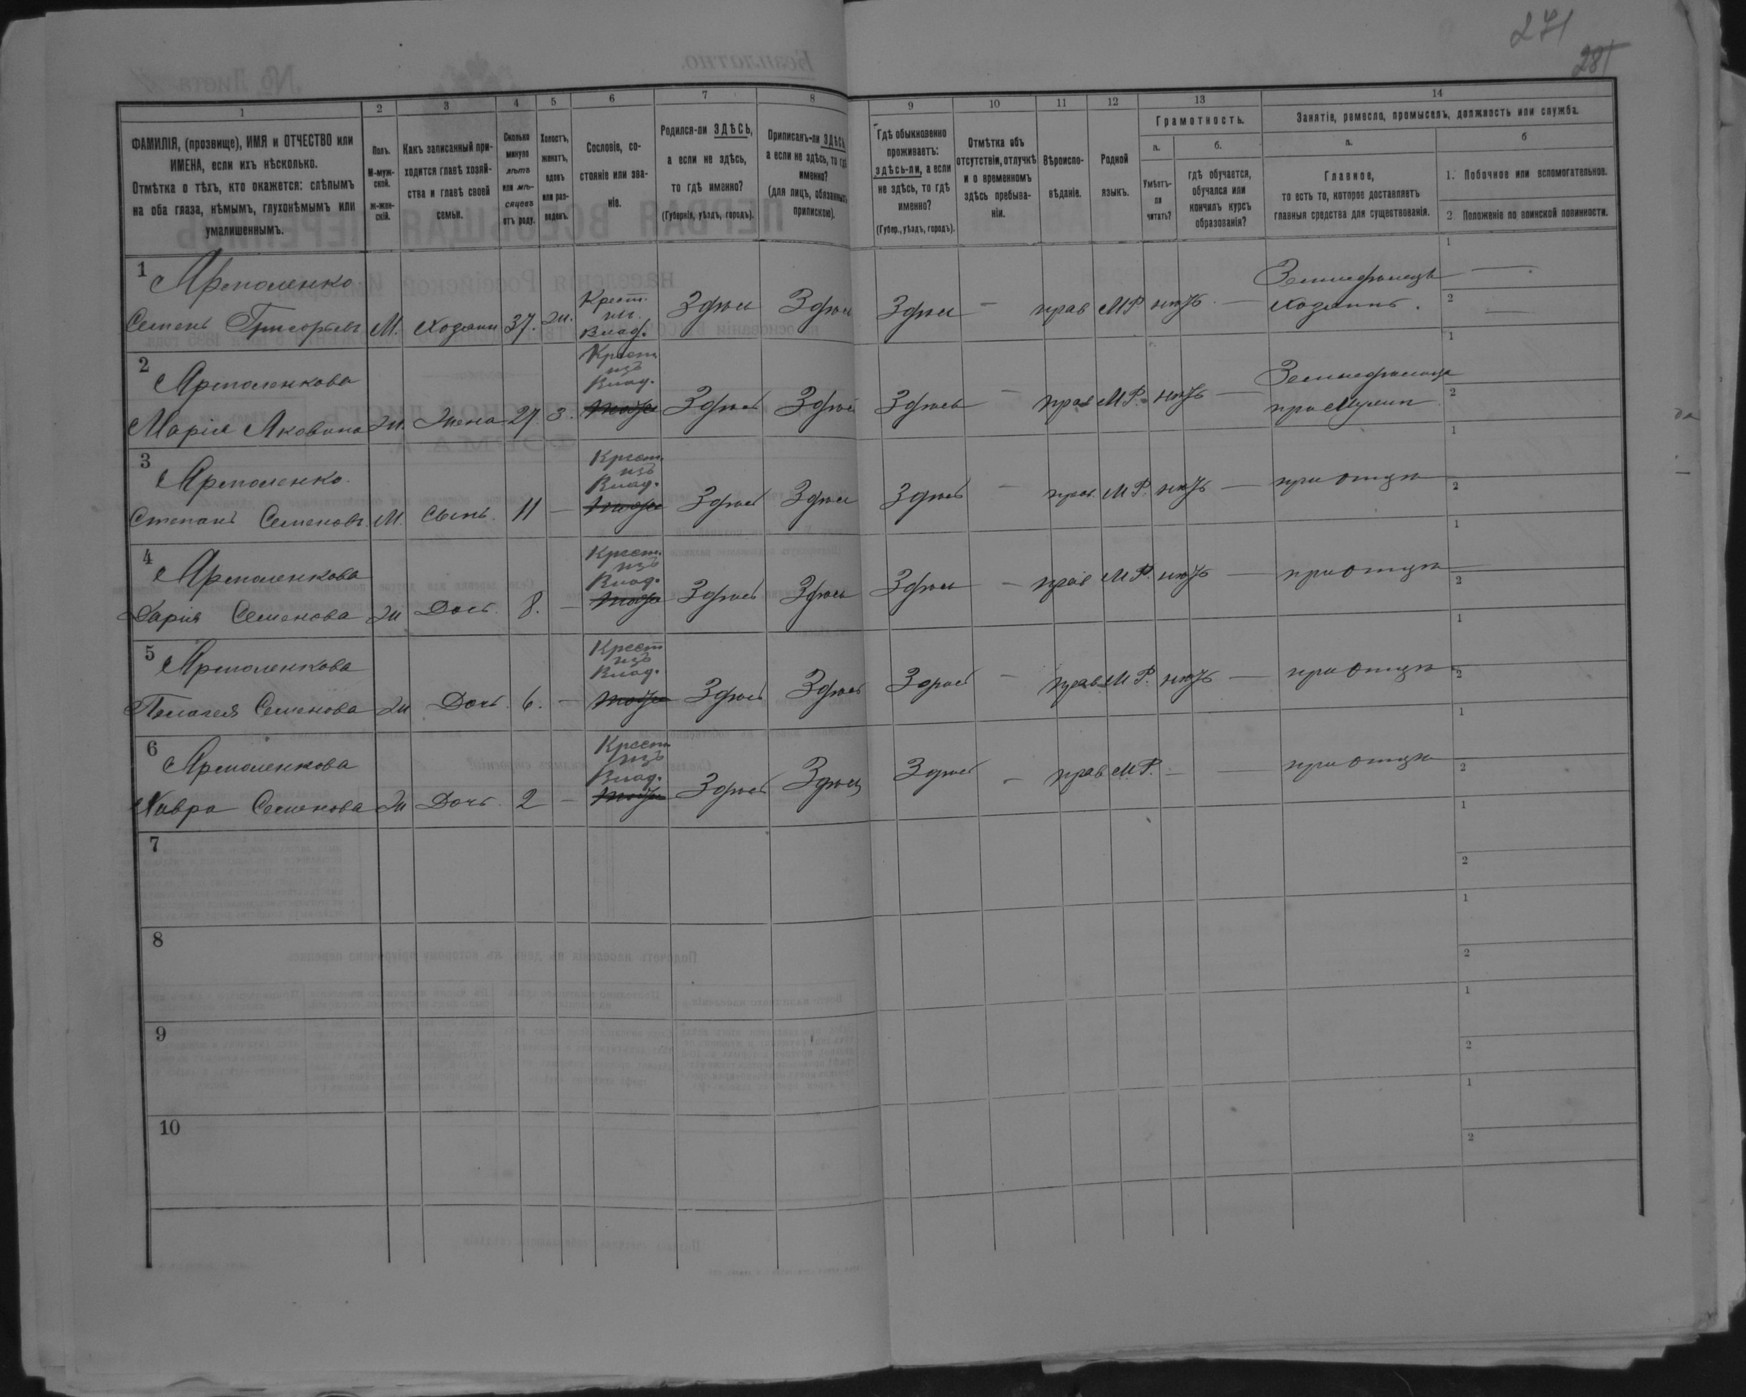 271
281
1
2
3
4
5
6
7
8
9
10
11
12
13
14
ФАМИЛІЯ, (прозвище), ИМЯ и ОТЧЕСТВО или
ИМЕНА, если ихъ нѣсколько.
Отмѣтка о тѣхъ, кто окажется: слѣпымъ
на оба глаза, нѣмымъ, глухонѣмымъ или
умалишеннымъ.
Полъ.
М-муж-
ской.
ж-жен-
скій.
Какъ записанный при-
ходится главѣ хозяй-
ства и главѣ своей
семьи.
Сколько
минуло
лѣтъ
или мѣ-
сяцевъ
отъ роду.
Холостъ,
женатъ,
вдовъ
или раз-
веденъ.
Сословіе, со-
стояніе или зва-
ніе.
Родился-ли ЗДѢСЬ,
а если не здѣсь,
то гдѣ именно?
(Губернія, уѣздъ, городъ).
Приписанъ-ли ЗДѢСЬ,
а если не здѣсь, то гдѣ
именно?
(для лицъ, обязанныхъ
припиской).
Гдѣ обыкновенно
проживаетъ:
здѣсь-ли, а если
не здѣсь, то гдѣ
именно?
(Губер., уѣздъ, городъ).
Отмѣтка объ
отсутствіи, отлучкѣ
и о временномъ
здѣсь пребыва-
ніи.
Вѣроиспо-
вѣданіе.
Родной
языкъ.
Грамотность.
а.
Умѣетъ-
ли
читать?
б.
гдѣ обучается,
обучался или
кончилъ курсъ
образованія?
Занятіе, ремесло, промыселъ, должность или служба.
а.
Главное,
то есть то, которое доставляетъ
главныя средства для существованія.
б
1. Побочное или вспомогательное.
2 Положеніе по воинской повинности.
1 Ярмоленко
Семенъ Григорьевъ М. Хозяинъ 37. Ж. Крест. из. Влад. Здѣсь Здѣсь Здѣсь — прав М.Р. нѣтъ — Земледѣлецъ Хозяинъ. 1 — 2 —
2 Ярмоленкова
Марія Яковлева Ж. Жена 27. З. Крест. изъ Влад. Здѣсь Здѣсь Здѣсь — прав М.Р. нѣтъ — Земледѣлица при Мужѣ 1 2
3 Ярмоленко
Степанъ Семеновъ М. Сынъ. 11 — Крест. изъ Влад. Здѣсь Здѣсь Здѣсь — прав М.Р. нѣтъ — при отцѣ 1 2
4 Ярмоленкова
Дарія Семенова Ж Дочь. 8. — Крест. изъ Влад. Здѣсь Здѣсь Здѣсь — прав М.Р. нѣтъ — при отцѣ 1 2
5 Ярмоленкова
Пелагея Семенова Ж Дочь. 6. — Крест изъ Влад. Здѣсь Здѣсь Здѣсь — прав М.Р. нѣтъ — при отцѣ 1 2
6 Ярмоленкова
Хавра Семенова Ж Дочь. 2 — Крест изъ Влад. Здѣсь Здѣсь Здѣсь — прав М.Р. — — при отцѣ 1 2
7 1 2
8 1 2
9 1 2
10 1 2